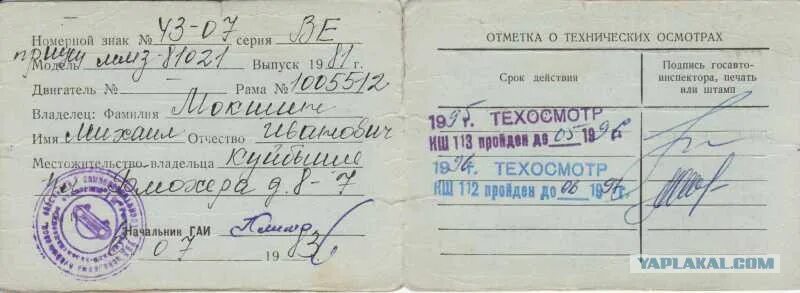 Номерной знак № 43-07 серия ВЕ
прицеп
Модель ммз-81021 Выпуск 1981 г.
Двигатель № Рама № 1005512
Владелец: Фамилия Мокшин
Имя Михаил Отчество Иванович
Местожительство владельца Куйбышев
д. 8-7
Начальник ГАИ
07 1983
ОТМЕТКА О ТЕХНИЧЕСКИХ ОСМОТРАХ
Срок действия
Подпись госавто-
инспектора, печать
или штамп
1995г. ТЕХОСМОТР
КШ 113 пройден до 05 1996
1996 г. ТЕХОСМОТР
КШ 112 пройден до 06 199
YAPLAKAL.COM